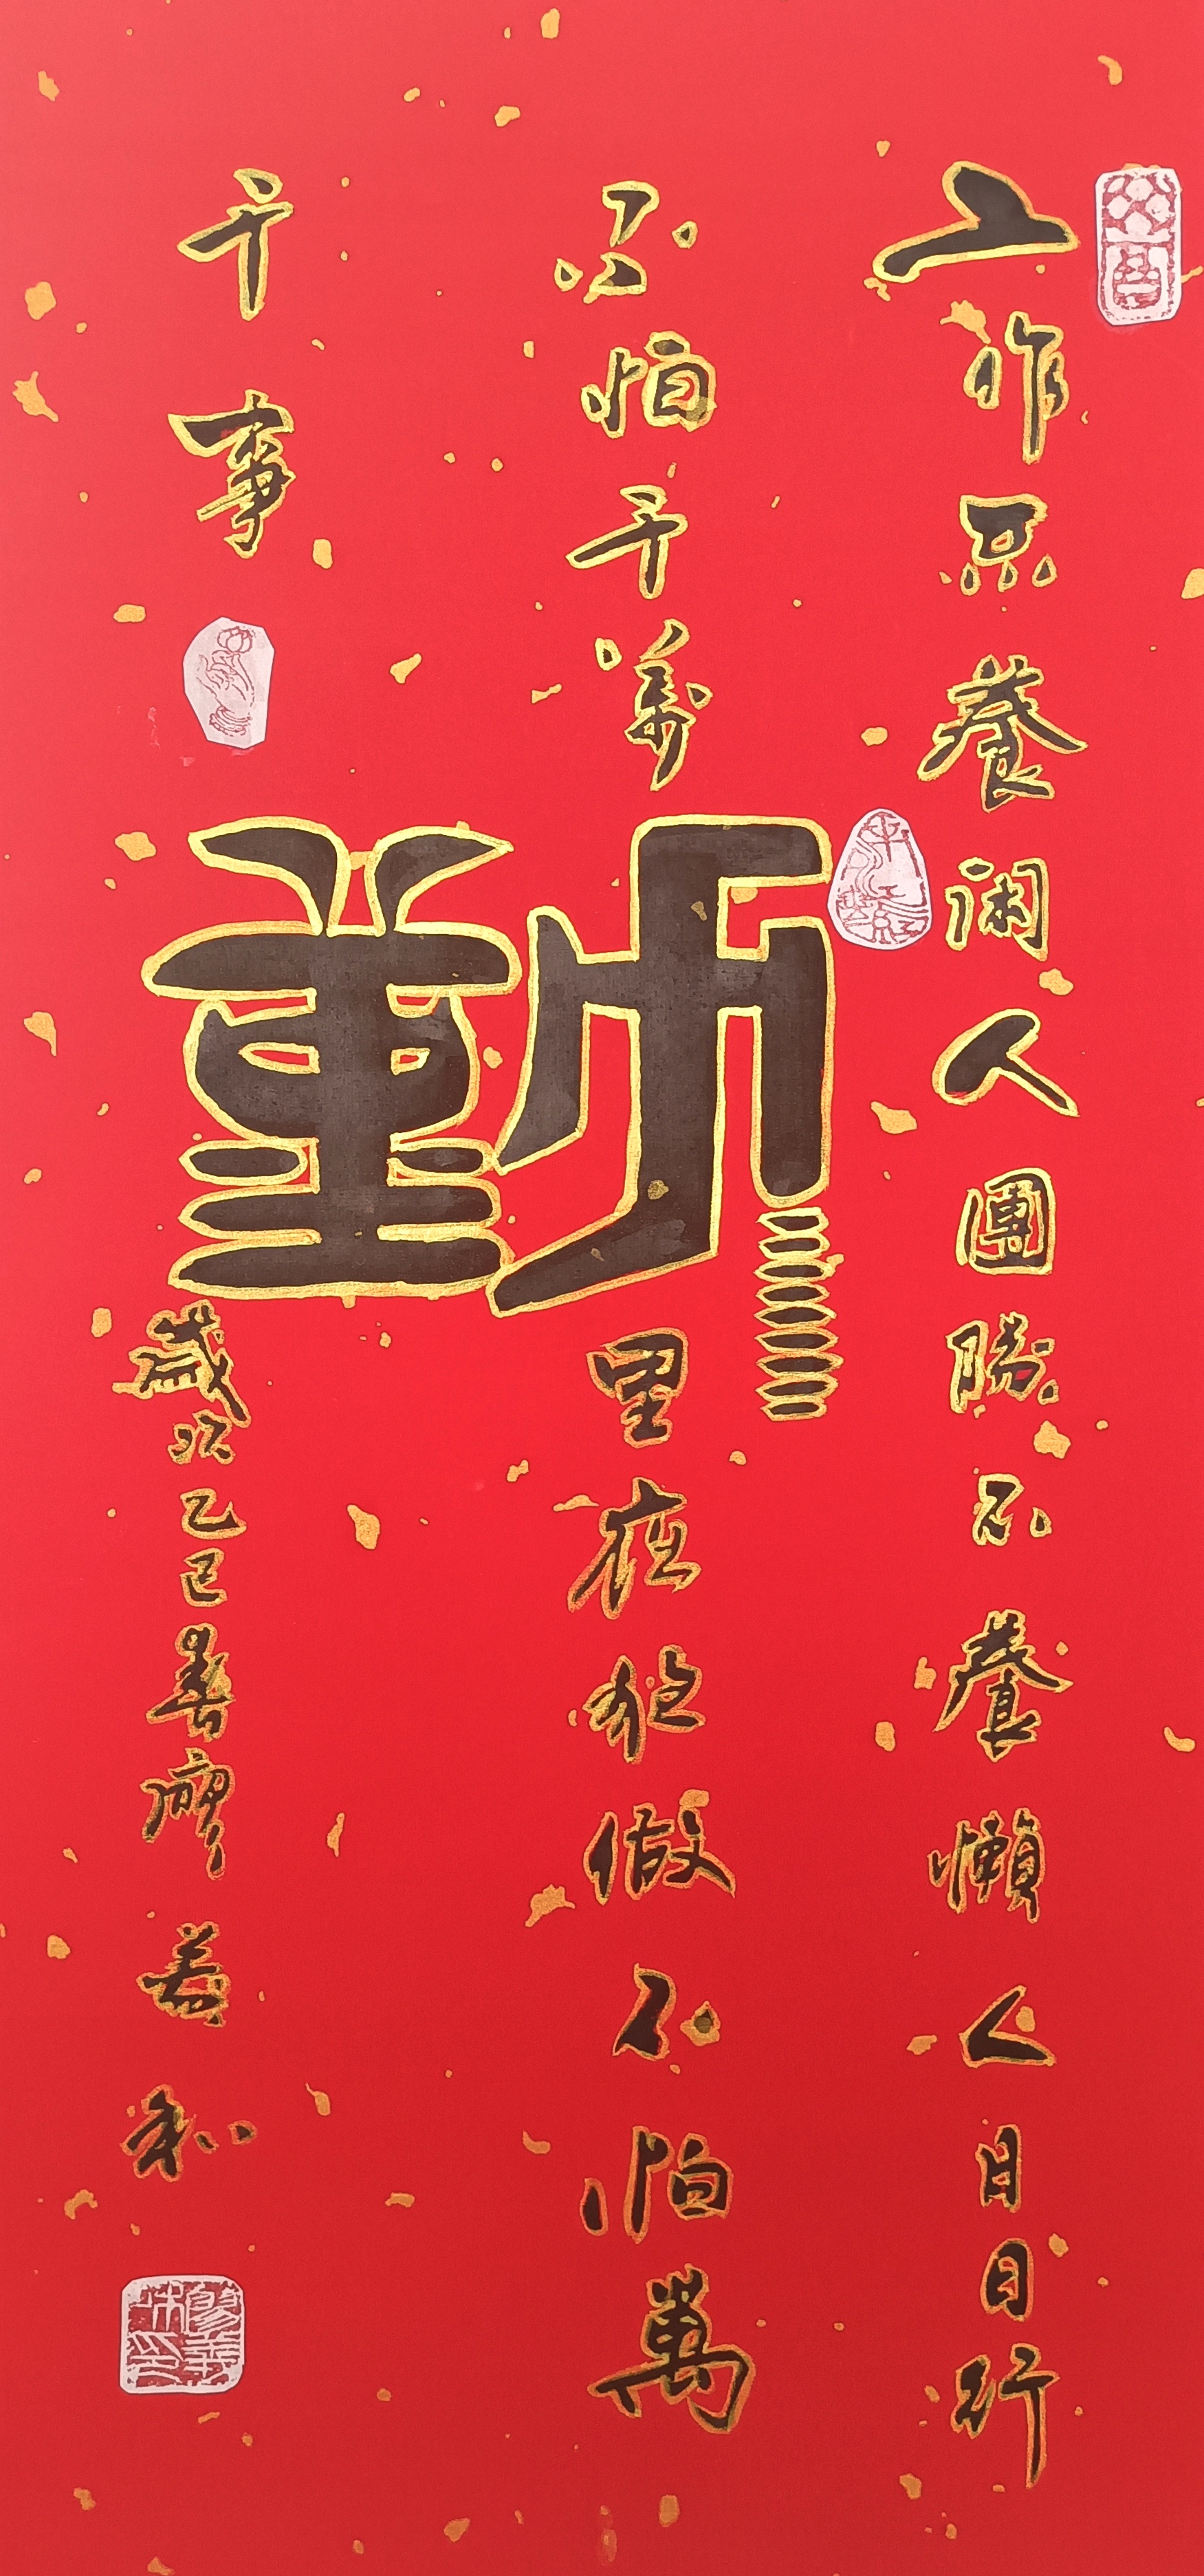 工作不養閑人團隊不養懶人日日行
不怕千萬里在於做不怕萬
千事
動
歲次乙巳春廖義和